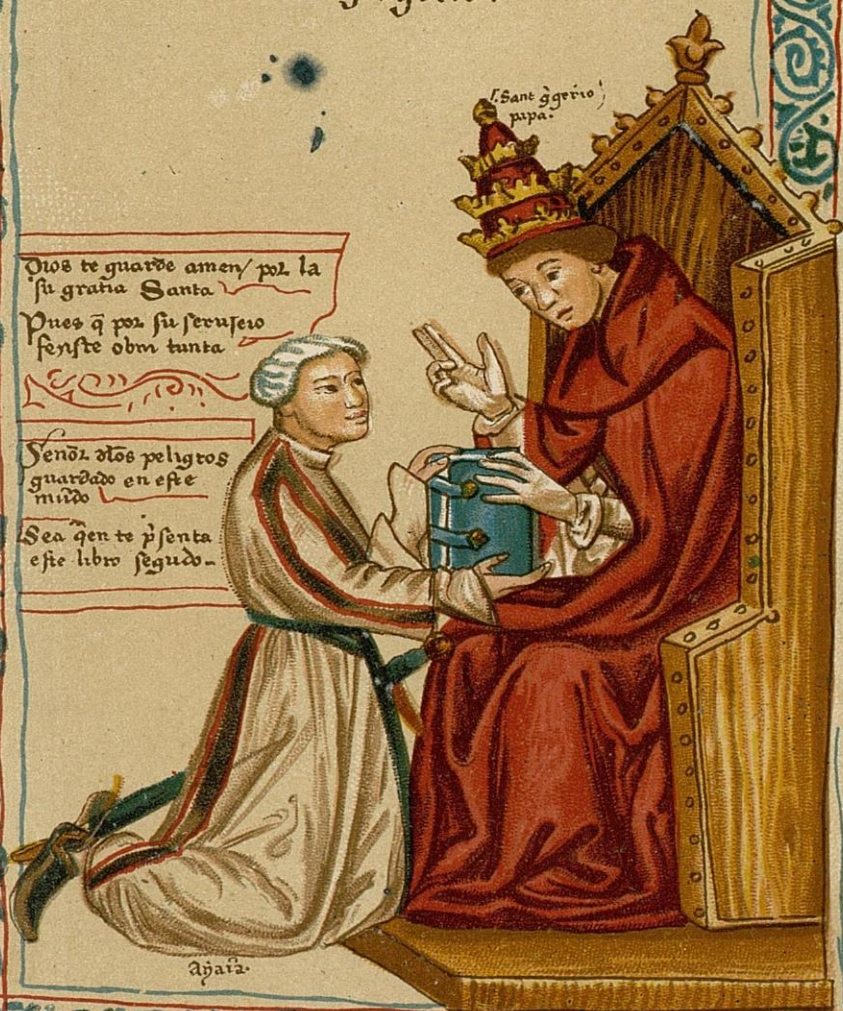 Sant g̃gerio
papa.
Dios te guarde amen/ por la
su gratia Santa
Pues q̃ por su seruiçio
feziste obra tanta
Señor dlos peligros
guardado en este
mũdo
Sea q̃en te p̃senta
este libro segũdo
Ayaĩa.